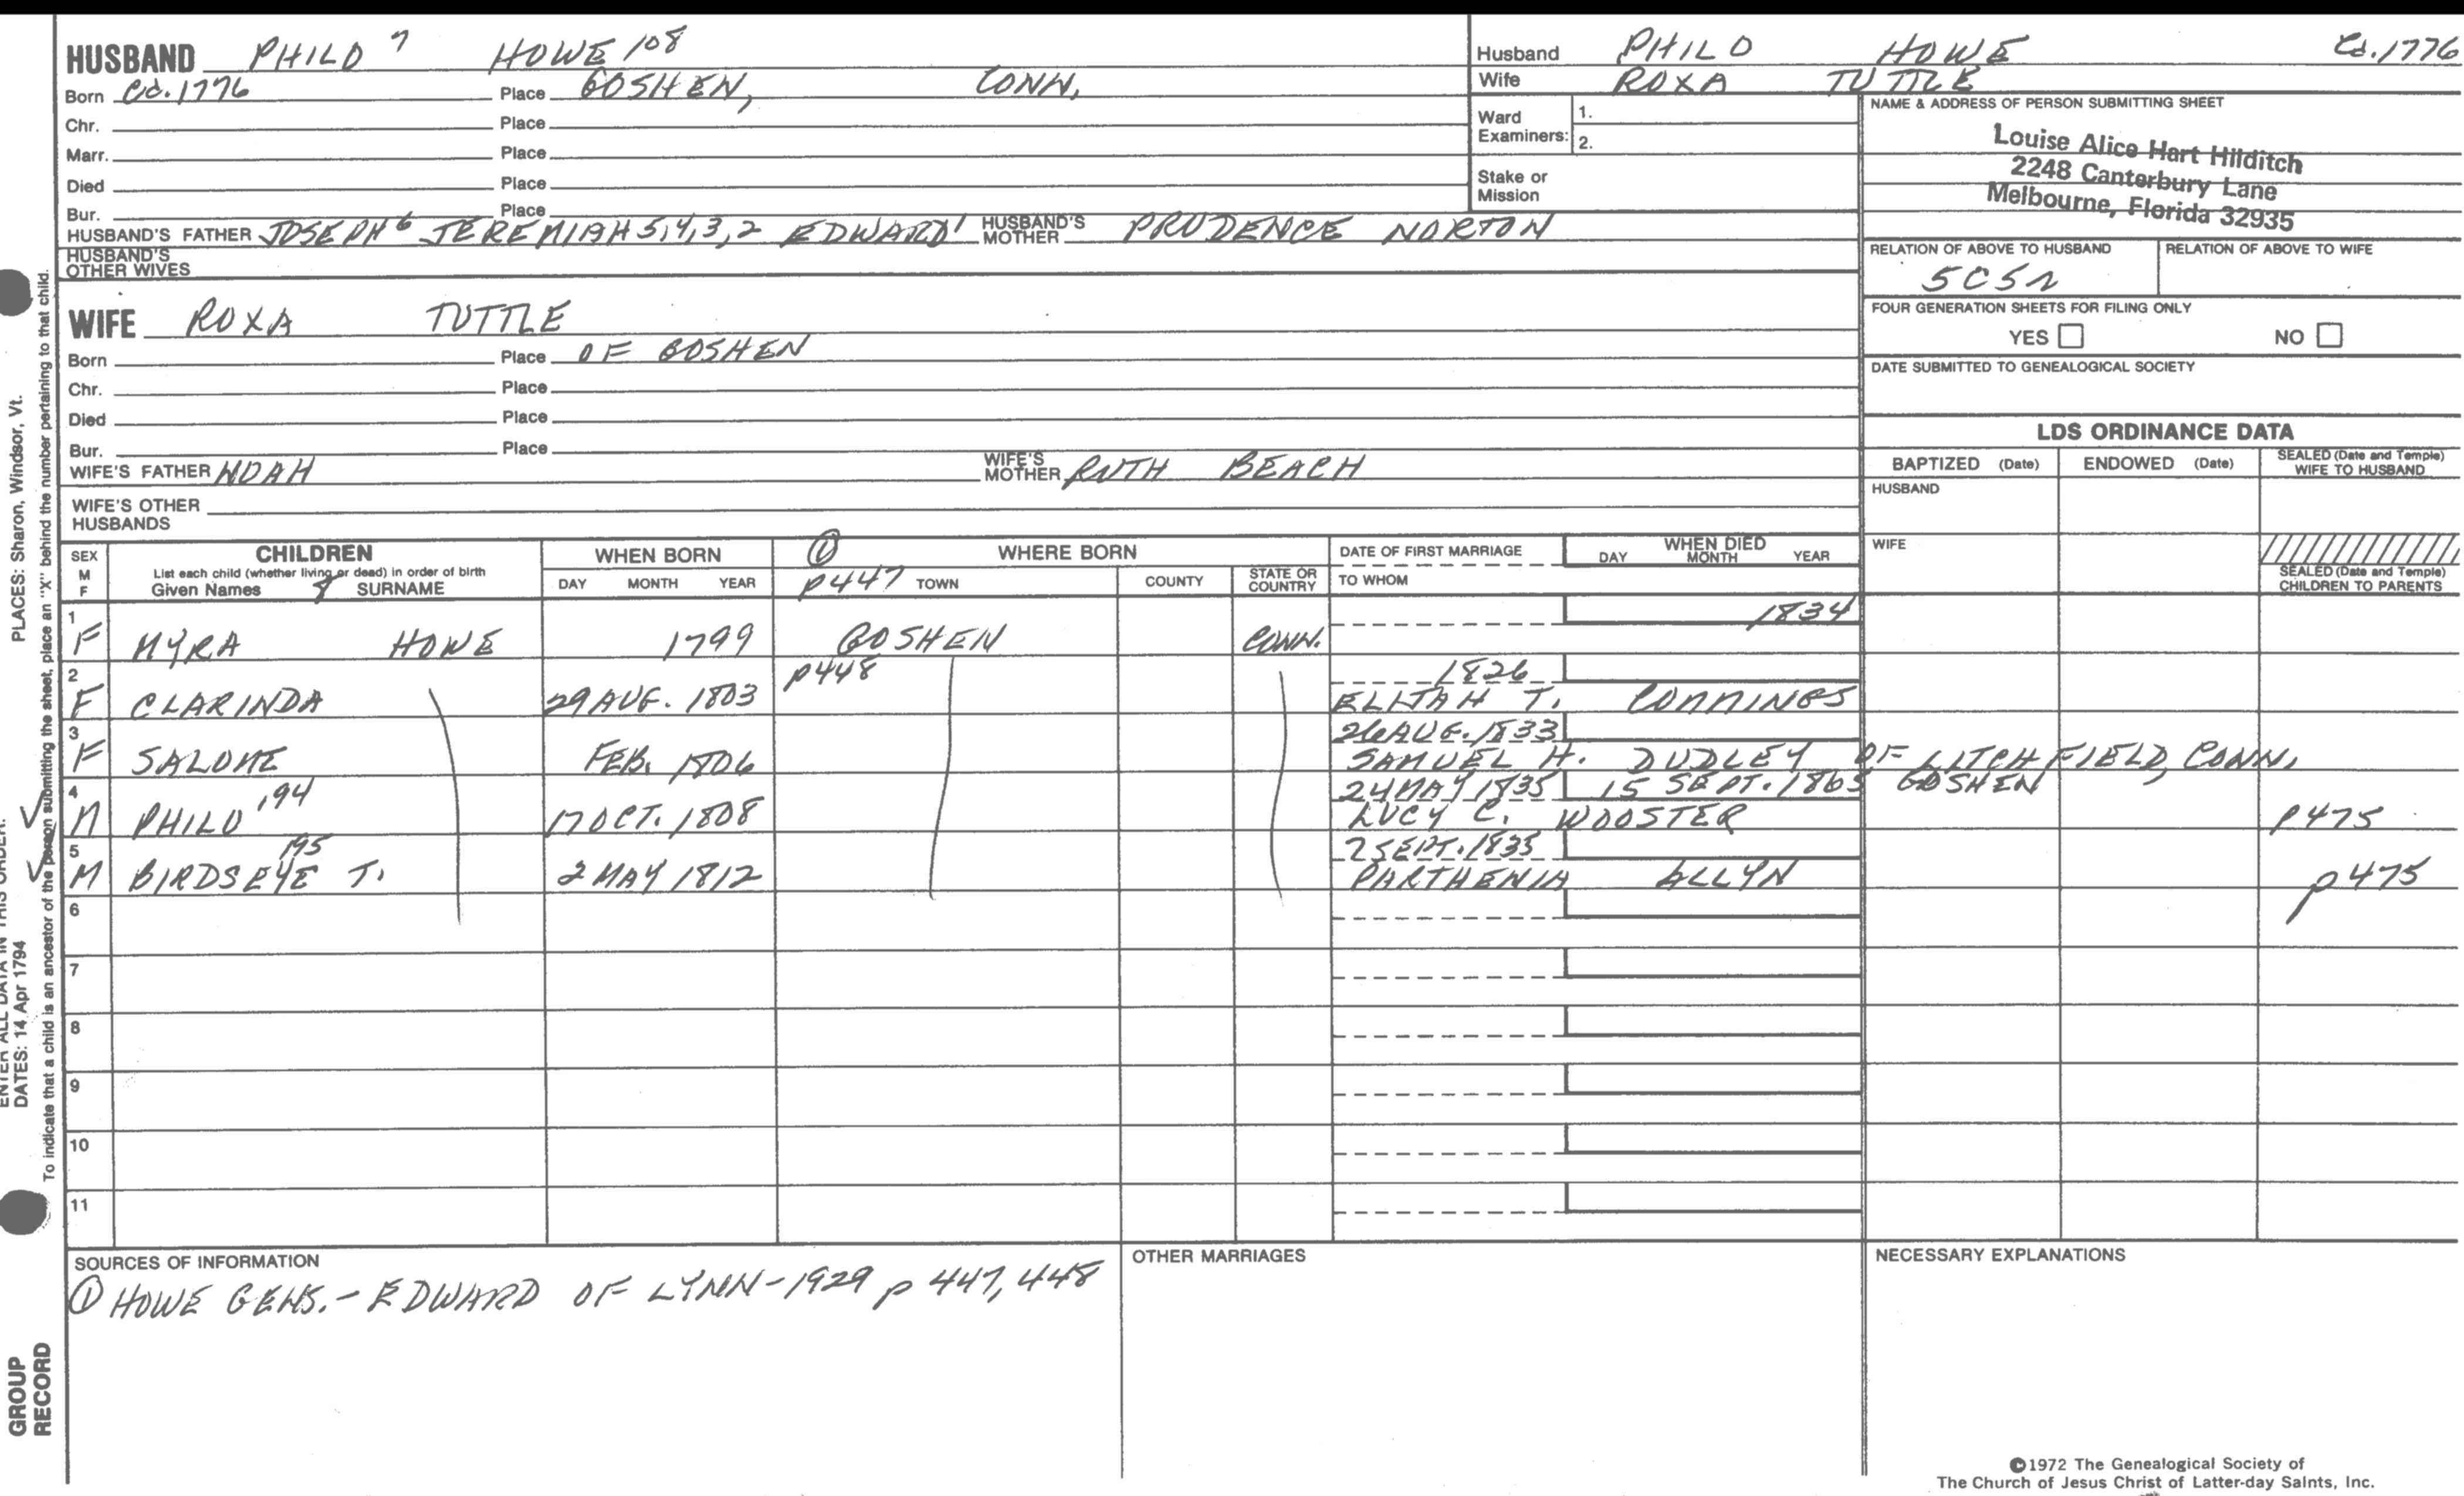 HUSBAND PHILO 7 HOWE 108
Born Ca. 1776 Place GOSHEN, CONN.
Chr. Place
Marr. Place
Died Place
Bur. Place
HUSBAND'S FATHER JOSEPH 6 JEREMIAH 5,4,3,2 EDWARD 1 HUSBAND'S MOTHER PRUDENCE NORTON
HUSBAND'S OTHER WIVES
Husband PHILO HOWE Ca. 1776
Wife ROXA TUTTLE
Ward Examiners: 1.
2.
Stake or Mission
NAME & ADDRESS OF PERSON SUBMITTING SHEET
Louise Alice Hart Hilditch
2248 Canterbury Lane
Melbourne, Florida 32935
RELATION OF ABOVE TO HUSBAND RELATION OF ABOVE TO WIFE
5C5r
FOUR GENERATION SHEETS FOR FILING ONLY
YES NO
DATE SUBMITTED TO GENEALOGICAL SOCIETY
WIFE ROXA TUTTLE
Born Place OF GOSHEN
Chr. Place
Died Place
Bur. Place
WIFE'S FATHER NOAH WIFE'S MOTHER RUTH BEACH
WIFE'S OTHER HUSBANDS
LDS ORDINANCE DATA
BAPTIZED (Date) ENDOWED (Date) SEALED (Date and Temple) WIFE TO HUSBAND
HUSBAND
WIFE
SEALED (Date and Temple) CHILDREN TO PARENTS
SEX M F
CHILDREN
List each child (whether living or dead) in order of birth
Given Names 8 SURNAME
WHEN BORN
DAY MONTH YEAR
① WHERE BORN
p447 TOWN COUNTY STATE OR COUNTRY
DATE OF FIRST MARRIAGE
TO WHOM
WHEN DIED
DAY MONTH YEAR
1 1834
F MYRA HOWE 1799 GOSHEN CONN.
2 p448 1826
F CLARINDA 29 AUG. 1803 ELIJAH T. COMMINGS
3 26 AUG. 1833
F SALOME FEB. 1806 SAMUEL H. DUDLEY OF LITCHFIELD, CONN.
4 24 MAY 1835 15 SEPT. 1865 GOSHEN
M PHILO 194 17 OCT. 1808 LUCY C. WOOSTER p475
5 2 SEPT. 1835
M BIRDSEYE T. 195 2 MAY 1812 PARTHENIA ALLYN p475
6
7
8
9
10
11
SOURCES OF INFORMATION
① HOWE GENS. - EDWARD OF LYNN - 1929 p 447, 448
OTHER MARRIAGES
NECESSARY EXPLANATIONS
©1972 The Genealogical Society of
The Church of Jesus Christ of Latter-day Saints, Inc.
PLACES: Sharon, Windsor, Vt.
To indicate that a child is an ancestor of the person submitting the sheet, place an "X" behind the number pertaining to that child.
ENTER ALL DATA IN THIS ORDER:
DATES: 14 Apr 1794
GROUP
RECORD